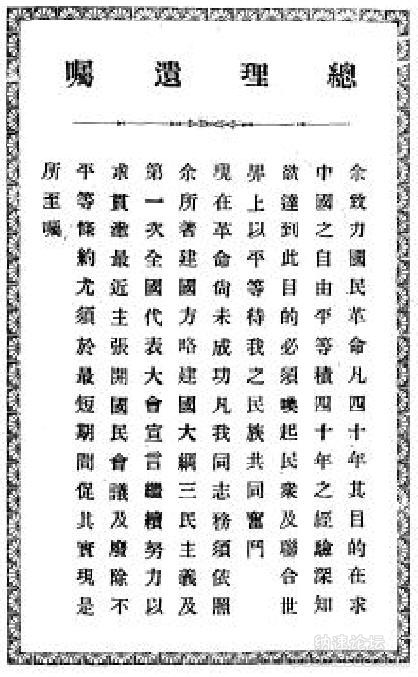 總理遺囑
余致力國民革命凡四十年其目的在求
中國之自由平等積四十年之經驗深知
欲達到此目的必須喚起民衆及聯合世
界上以平等待我之民族共同奮鬥
現在革命尙未成功凡我同志務須依照
余所著建國方略建國大綱三民主義及
第一次全國代表大會宣言繼續努力以
求貫澈最近主張開國民會議及廢除不
平等條約尤須於最短期間促其實現是
所至囑